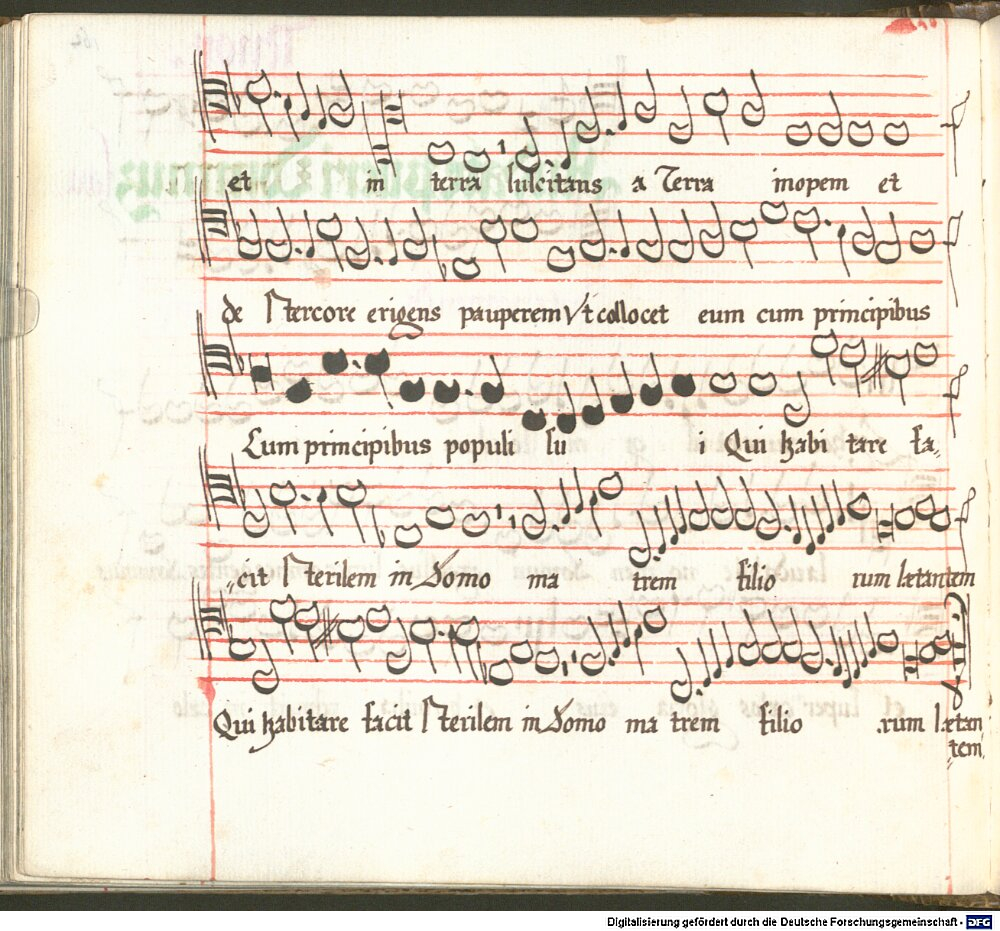 et in terra suscitans a Terra inopem et
de stercore erigens pauperem Vt collocet eum cum principibus
Cum principibus populi su i Qui habi tare fa-
-cit sterilem in domo ma trem filio rum lætantem
Qui habitare facit sterilem in domo ma trem filio -rum lætan
-tem
Digitalisierung gefördert durch die Deutsche Forschungsgemeinschaft - DFG